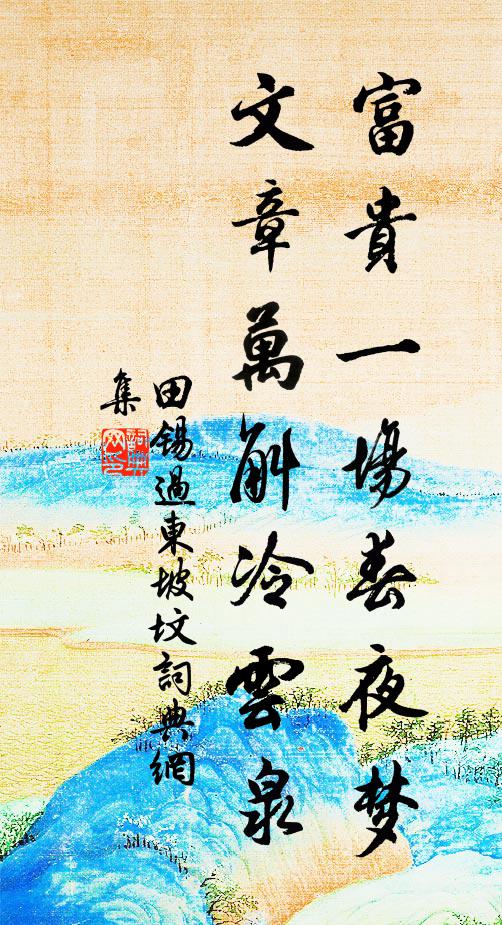 富貴一場春夜梦
文章萬斛冷雲泉
田錫過東坡坟詞典網
集